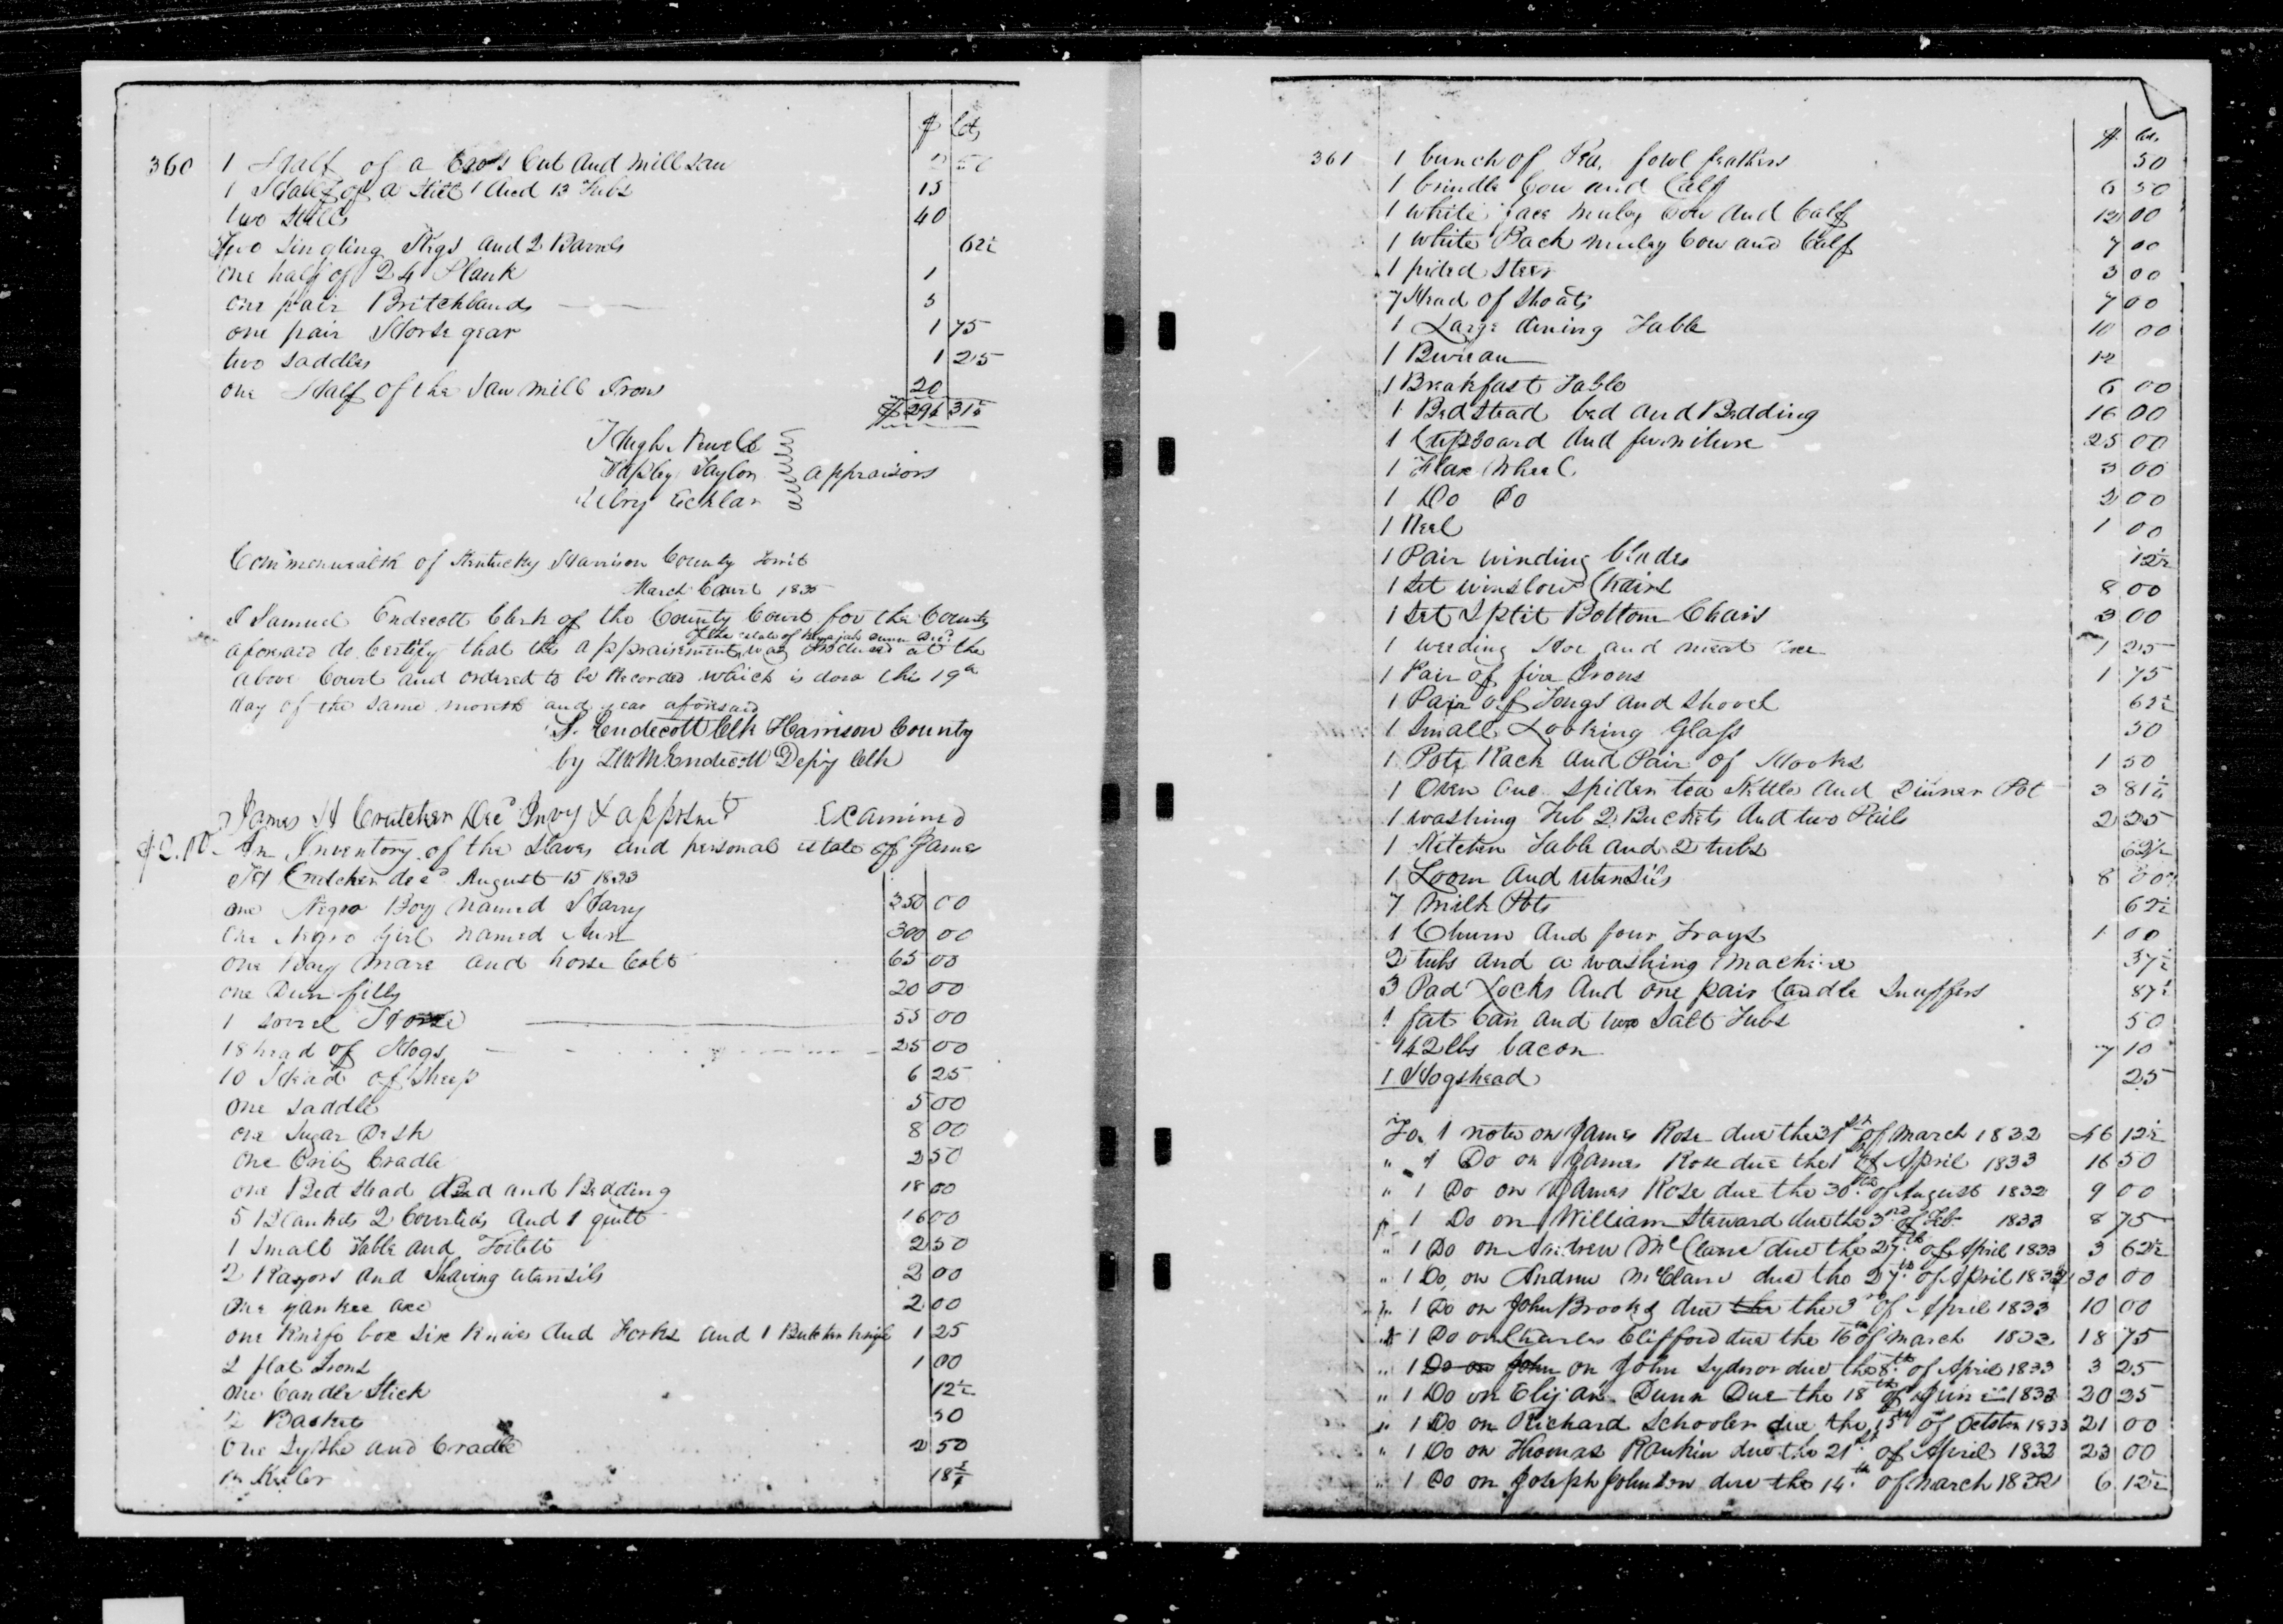 $ Cts
360 1 Half of a Cross Cut and Mill Saw
1 Half of a Still 1 And 13 Tubs 15
two Stills 40
Two Singling Kegs and 2 Barrels 62½
one half of 24 Plank 1
one pair Britchbands 3
one pair Horse gear 1 75
two Saddles 1 25
one Half of the Saw mill Iron 20
$ 294 31½
Hugh Newell
Tapley Taylor appraisors
Ulry Ecklar
Commonwealth of Kentucky Harrison County Towit
March Court 1835
I Samuel Endecott Clerk of the County Court for the County
of the estate of Benajah Dunn Decd
aforesaid do Certify that this appraisement was produced at the
above Court and ordered to be Recorded which is done this 19th
day of the same month and year aforesaid
S. Endecott Clk Harrison County
by Endecott Depty Clk
James H Crutcher Decd Invy & apprsmt Examined
$2.00 An Inventory of the Slaves and personal estate of James
H Crutcher decd August 15 1833
one Negro Boy Named Harry 350 00
one Negro Girl named Ann 300 00
one Bay Mare and horse Colt 65 00
one Dun filly 20 00
1 sorrel Horse 55 00
18 head of Hogs 25 00
10 Head of Sheep 6 25
one Saddle 5 00
one Sugar Desk 8 00
one Crib Cradle 2 50
one Bed Stead Bed and Bedding 18 00
5 Blankets 2 Coverlids and 1 quilt 16 00
1 Small Table and Toilett 2 50
2 Razors and Shaving utensils 2 00
one yankee axe 2 00
one Knife box Six Knives and Forks and 1 Butcher Knife 1 25
2 flat Irons 1 00
one Candle Stick 12½
2 Baskets 50
One Sythe and Cradle 2 50
Keeler 18¾
$ Cts.
361 1 bunch of Pea fowl feathers 50
1 brindle Cow and Calf 6 50
1 White face Muley Cow and Calf 12 00
1 White Back muley Cow and Calf 7 00
1 pided Steer 3 00
7 Head of Shoats 7 00
1 Large dining Table 10 00
1 Bureau 12
1 Breakfast Table 6 00
1 Bedstead bed and Bedding 16 00
1 Cupboard and furniture 25 00
1 Flax Wheel 3 00
1 Do Do 2 00
1 Reel 1 00
1 Pair winding blades 12½
1 Set winslow Chairs 8 00
1 Set Split Bottom Chairs 3 00
1 weeding Hoe and meat axe 1 25
1 Pair of fire Irons 1 75
1 Pair of Tongs and Shovel 62½
1 Small Looking Glass 50
1 Pot Rack and Pair of Hooks 1 50
1 Oven One Spider tea Kettle and Dinner Pot 3 81¼
1 washing Tub 2 Buckets And two Pails 2 25
1 Kitchen Table and 2 tubs 62½
1 Loom and utensils 8 00
7 Milk Pots 62½
1 Churn And four Trays 1 00
2 tubs and a washing Machine 37½
3 Pad Locks And one pair Candle Snuffers 87½
1 fat Can and two Salt Tubs 50
142 lbs bacon 7 10
1 Hogshead 25
To 1 note on James Rose due the 31st of March 1832 46 12½
" 1 Do on James Rose due the 1st of April 1833 16 50
" 1 Do on James Rose due the 30th of August 1832 9 00
" 1 Do on William Steward due the 3rd of Feb 1833 8 75
" 1 Do on Andrew McClane due the 27th of April 1833 3 62½
" 1 Do on Andrew McClane due the 27th of April 1833 30 00
" 1 Do on John Brooks due the the 3rd of April 1833 10 00
" 1 Do on Charles Clifford due the 16th of March 1833 18 75
" 1 Do on John on John Sydnor due the 8th of April 1833 3 25
" 1 Do on Elijah Dunn Due the 18th of June 1832 20 25
" 1 Do on Richard Schooler due the 15th of October 1833 21 00
" 1 Do on Thomas Rankin due the 21st of April 1832 23 00
" 1 Do on Joseph Johnson due the 14th of March 1832 6 12½